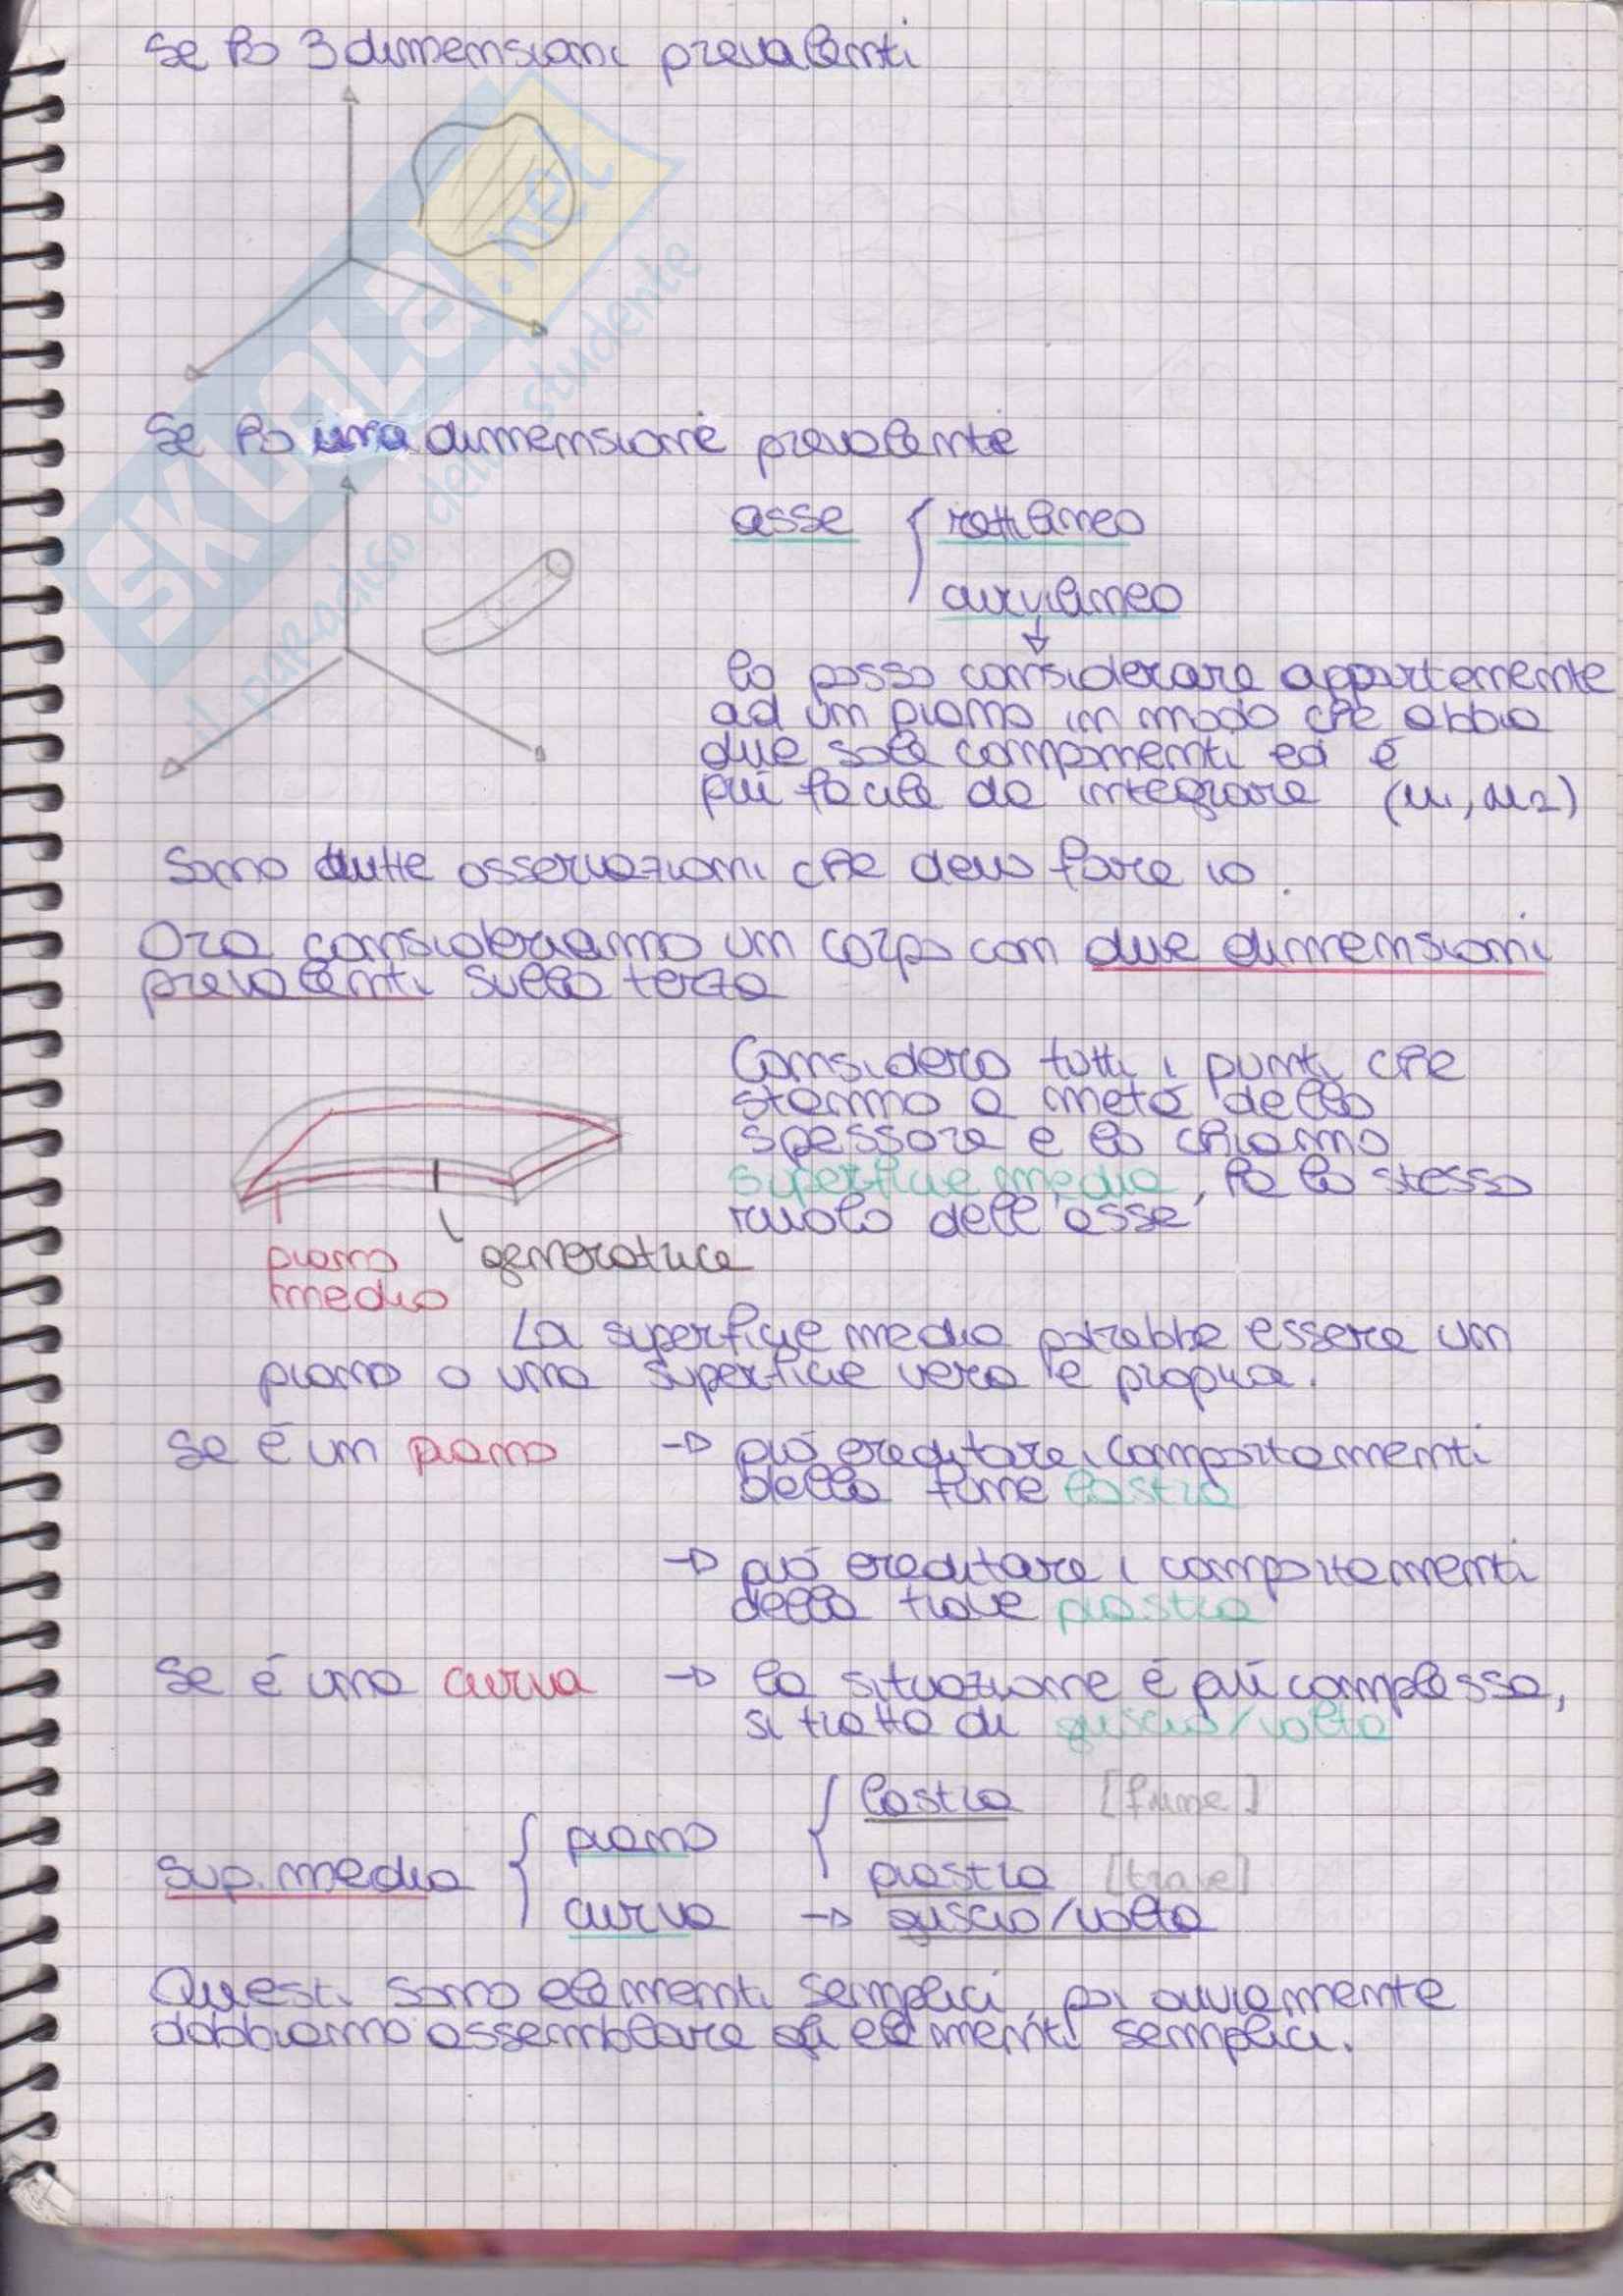 Se ho 3 dimensioni prevalenti
Se ho una dimensione prevalente
asse { rettilineo
curvilineo
↓
lo posso considerare appartenente
ad un piano in modo che abbia
due sole componenti ed é
piú facile da integrare (u1, u2)
Sono tutte osservazioni che devo fare io.
Ora consideriamo un corpo con due dimensioni
prevalenti sulla terza
Considero tutti i punti che
stanno a metá dello
spessore e lo chiamo
superficie media, ha lo stesso
ruolo dell'asse
piano
medio
generatrice
La superficie media potrebbe essere un
piano o una superficie vera e propria.
Se é un piano → puó ereditare i comportamenti
della fune lastra
→ puó ereditare i comportamenti
della trave piastra
Se é una curva → la situazione é piú complessa,
si tratta di guscio/volta
sup. media { piano { lastra [fune]
piastra [trave]
curva → guscio/volta
Questi sono elementi semplici, poi ovviamente
dobbiamo assemblare gli elementi semplici.
SKUOLA.net
il paradiso dello studente